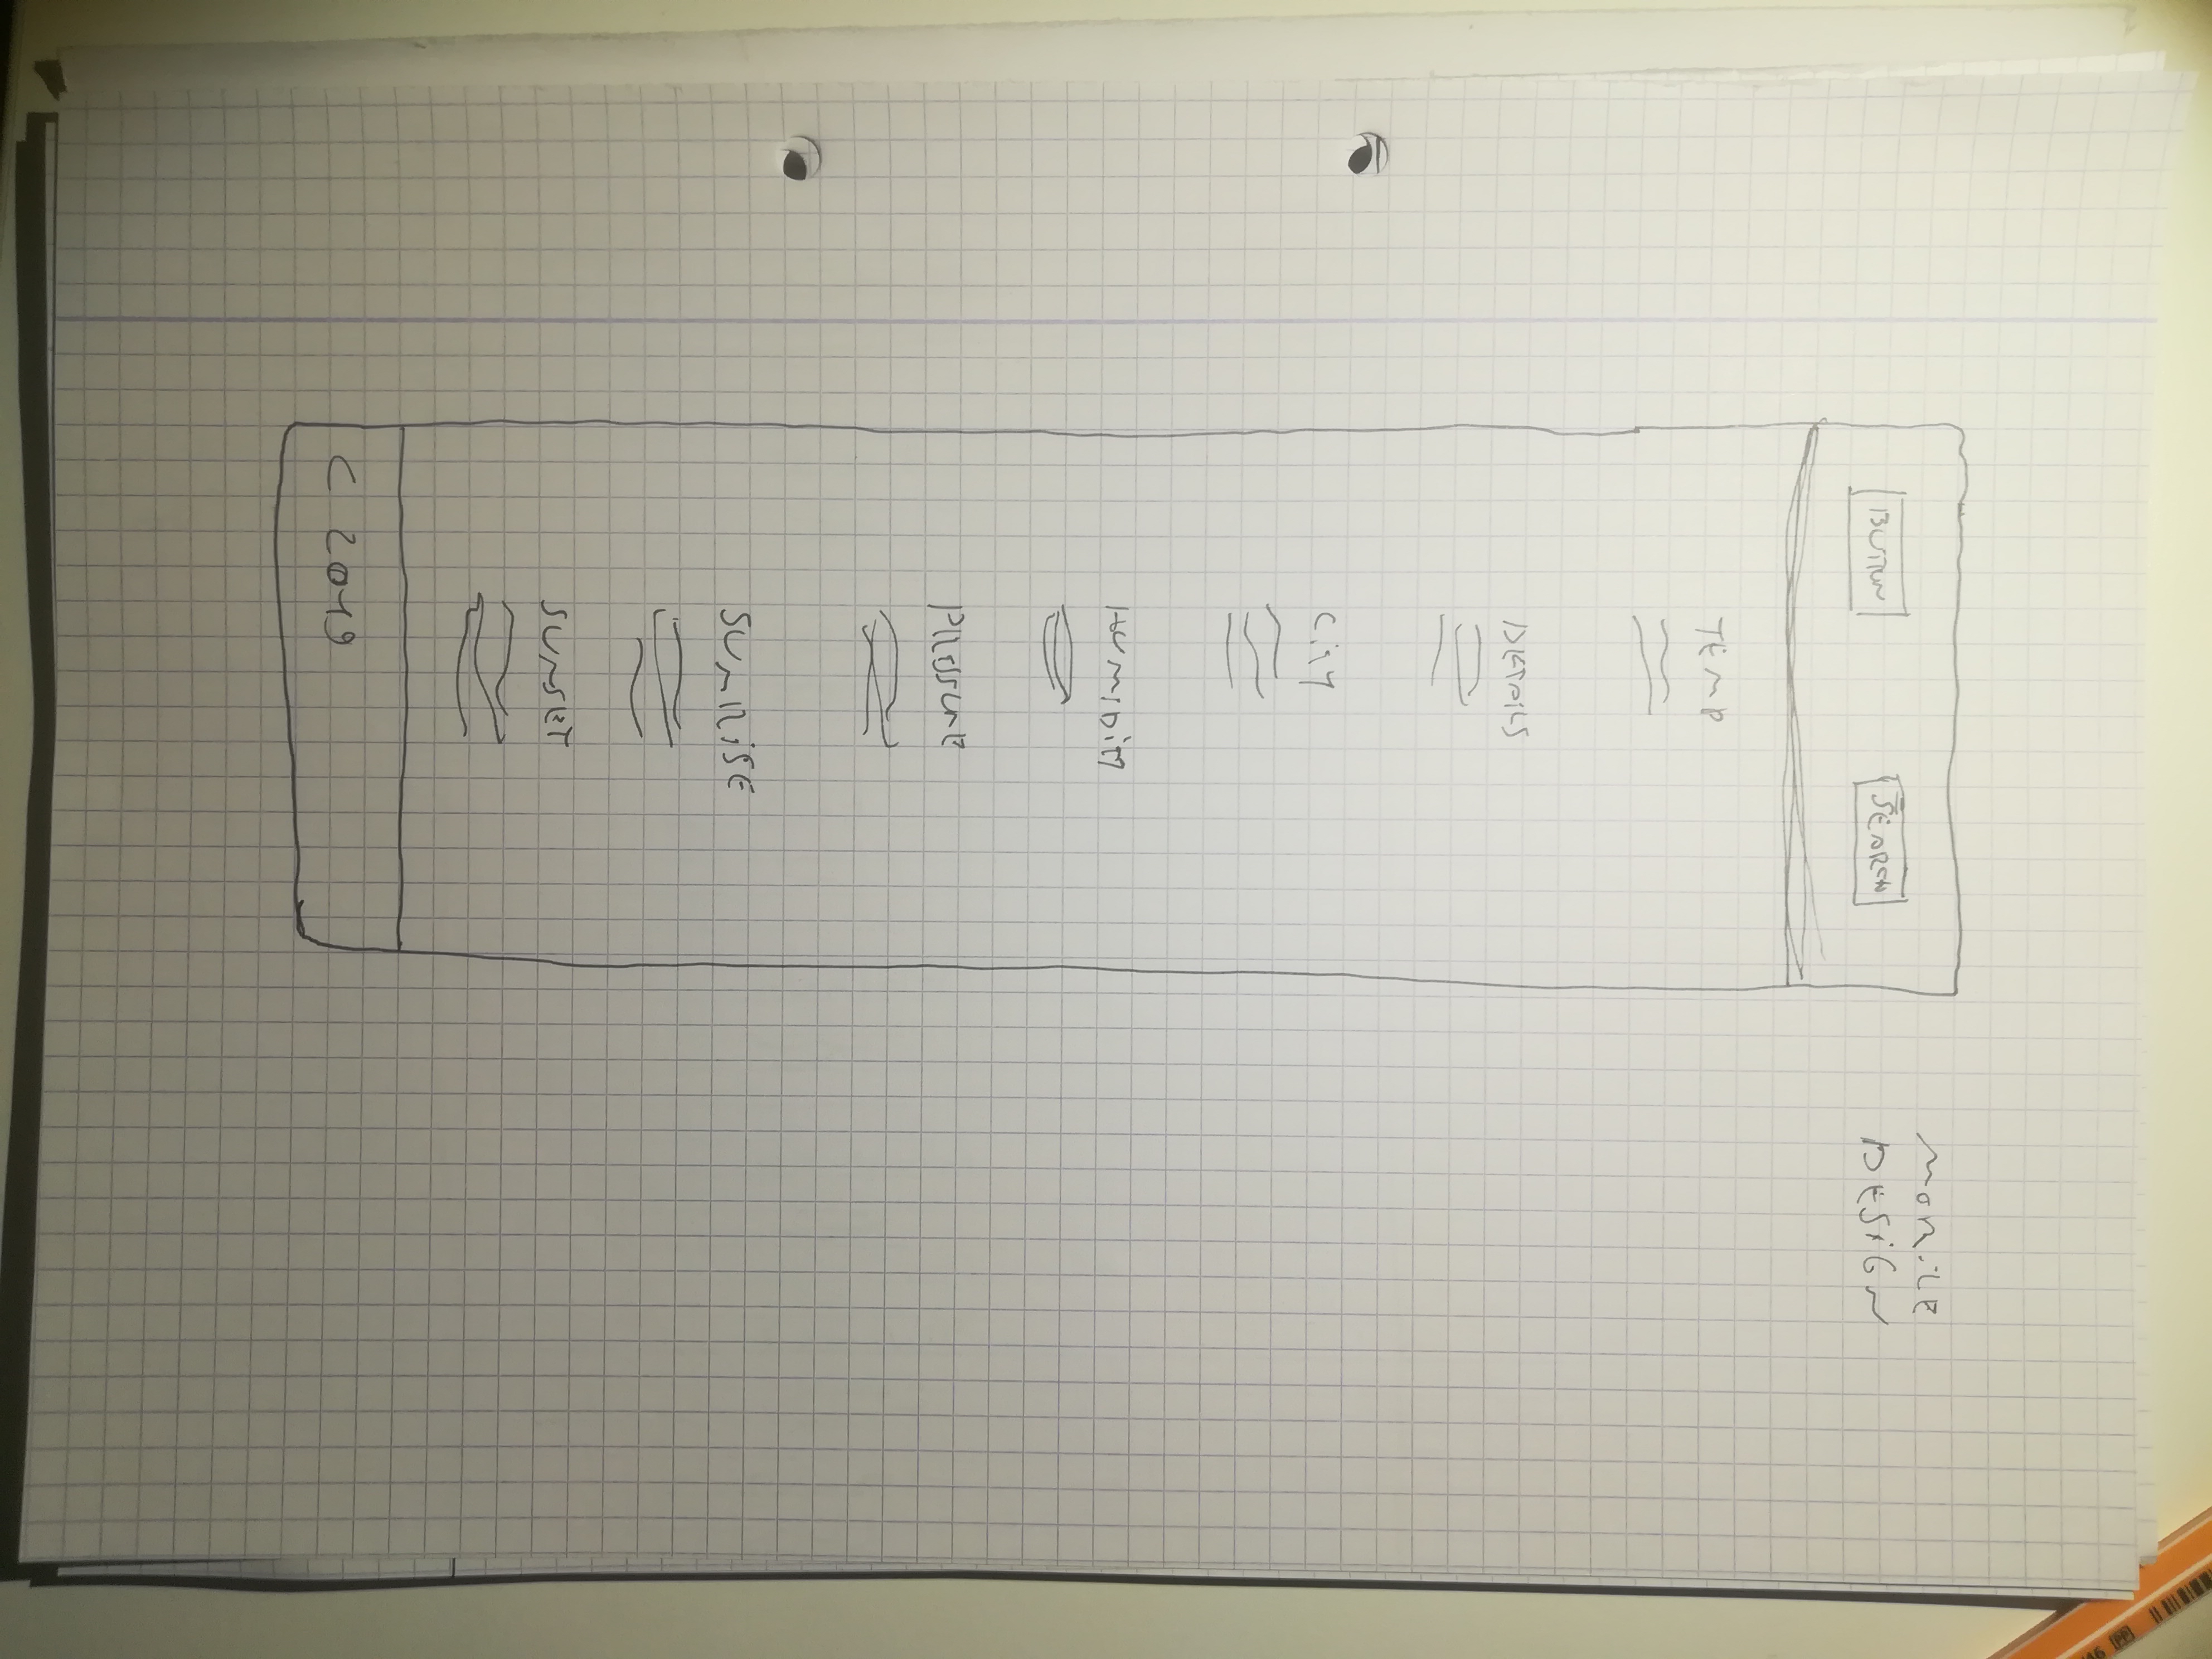 MOBILE
DESIGN
BUTTON SEARCH
TEMP
DETAILS
City
HUMIDITY
PRESSURE
SUNRISE
SUNSET
C 2019
PP